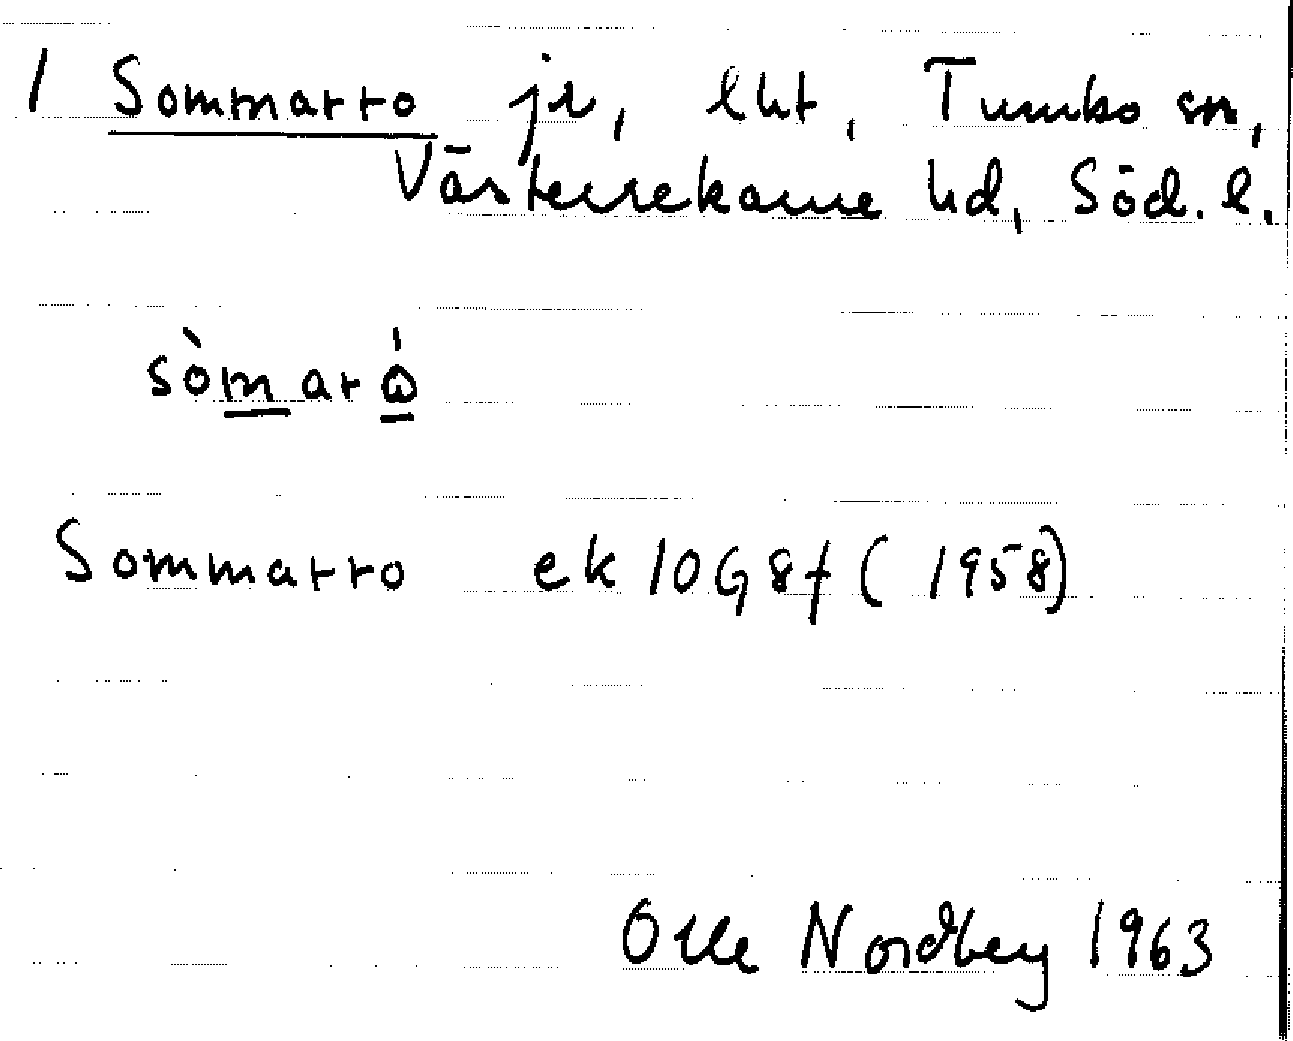 1 Sommarro jr, lht, Tumbo sn,
Västerrekarne hd, Söd. l.
sòmarò
Sommarro ek 10G8f (1958)
Olle Nordberg 1963